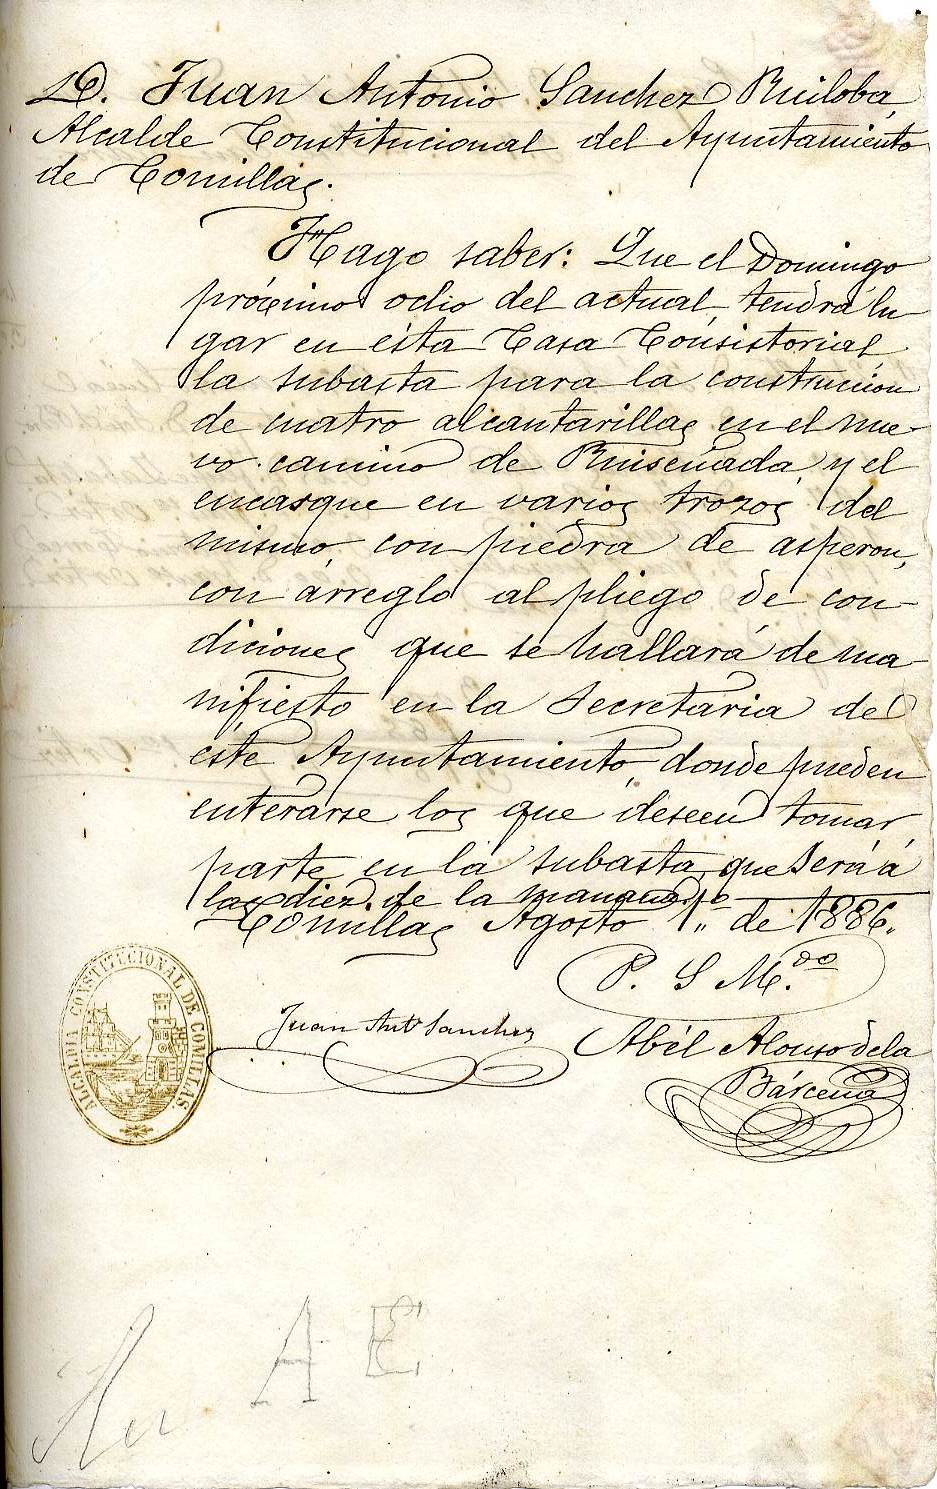 D. Juan Antonio Sanchez Ruiloba,
Alcalde Constitucional del Ayuntamiento
de Comillas.
Hago saber: Que el Domingo
próximo ocho del actual, tendrá lu-
gar en ésta Casa Consistorial
la subasta para la construcción
de cuatro alcantarillas en el nue-
vo camino de Ruiseñada y el
encasque en varios trozos del
mismo, con piedra de asperon,
con arreglo al pliego de con-
diciones que se hallará de ma-
nifiesto en la Secretaria de
éste Ayuntamiento, donde pueden
enterarse los que deseen tomar
parte en la subasta, que será á
las diez de la mañana.
Comillas Agosto 1.º de 1886.
P. S. M.do
Juan Ant.o Sanchez
Abél Alonso de la
Bárcena
ALCALDIA CONSTITUCIONAL DE COMILLAS
A E